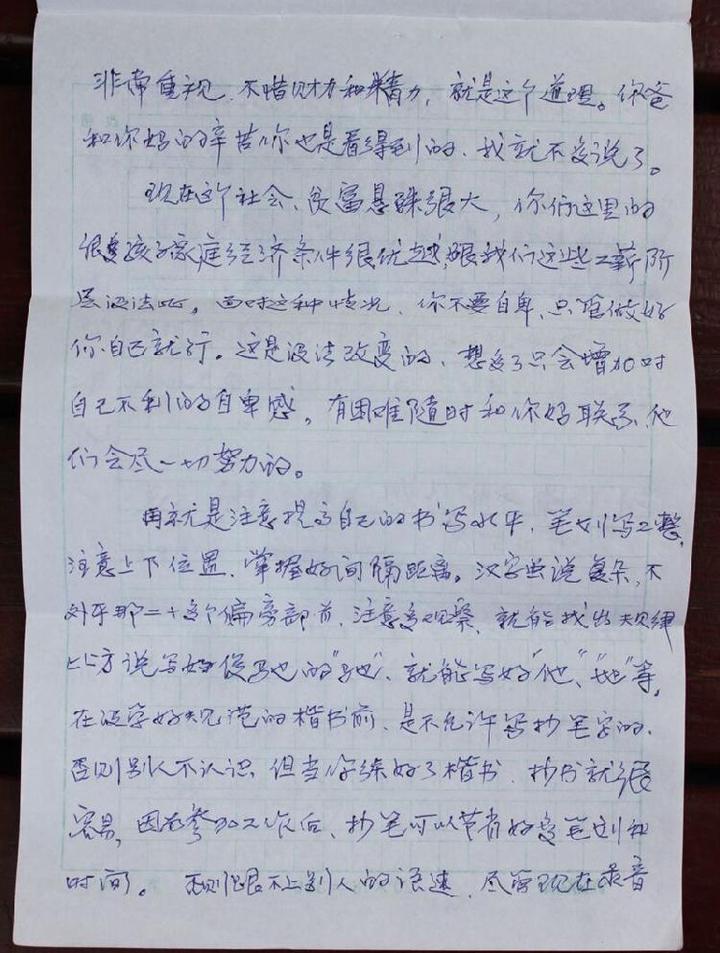 非常重视、不惜财力和精力，就是这个道理。你爸
和你妈的辛苦你也是看得到的、我就不多说了。
现在这个社会、贫富悬殊很大，你们这里的
很多孩子家庭经济条件很优越，跟我们这些工薪阶
层没法比。面对这种情况、你不要自卑、只管做好
你自己就行。这是没法改变的、想多了只会增加对
自己不利的自卑感。有困难随时和你妈联系、他
们会尽一切努力的。
再就是注意提高自己的书写水平，笔划写工整，
注意上下位置、掌握好间隔距离。汉字虽说复杂、不
外乎那二十多个偏旁部首、注意多观察、就能找出规律
比方说写好 的"驰"、就能写好"他"、"她"等，
在没学好规范的楷书前、是不允许写抄笔字的、
否则别人不认识、但当你练好了楷书、抄书就很
容易，因为参加工作后、抄笔可以节省好多笔划和
时间。否则跟不上别人的语速、尽管现在录音